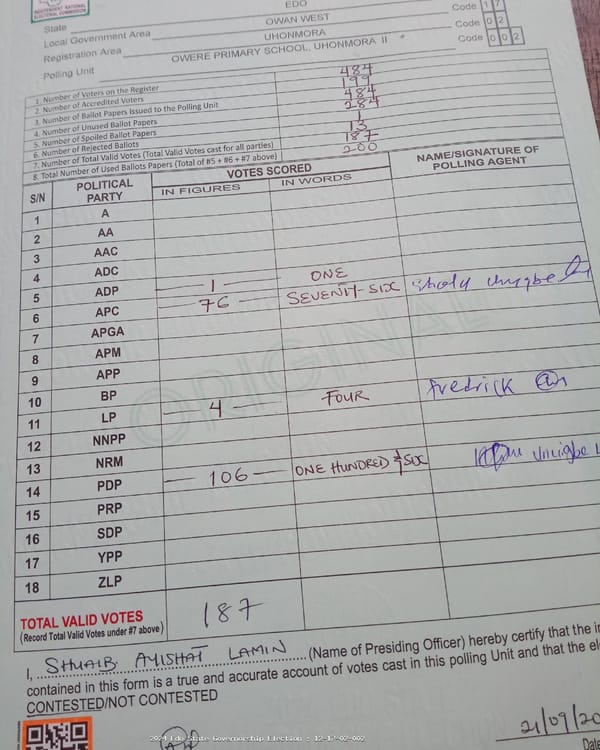 INDEPENDENT NATIONAL
ELECTORAL COMMISSION
State EDO Code 1
Local Government Area OWAN WEST Code 02
Registration Area UHONMORA Code 002
Polling Unit OWERE PRIMARY SCHOOL, UHONMORA II
1. Number of Voters on the Register 484
2. Number of Accredited Voters 199
3. Number of Ballot Papers Issued to the Polling Unit 484
4. Number of Unused Ballot Papers 284
5. Number of Spoiled Ballot Papers 1
6. Number of Rejected Ballots 13
7. Number of Total Valid Votes (Total Valid Votes cast for all parties) 187
8. Total Number of Used Ballots Papers (Total of #5 + #6 + #7 above) 200
S/N POLITICAL PARTY VOTES SCORED NAME/SIGNATURE OF POLLING AGENT
IN FIGURES IN WORDS
1 A
2 AA
3 AAC
4 ADC
5 ADP 1 ONE
6 APC 76 SEVENTY-SIX
7 APGA
8 APM
9 APP
10 BP
11 LP 4 FOUR fredrick
12 NNPP
13 NRM
14 PDP 106 ONE HUNDRED & SIX
15 PRP
16 SDP
17 YPP
18 ZLP
ORIGINAL
TOTAL VALID VOTES 187
(Record Total Valid Votes under #7 above)
I, SHUAIB AYISHAT LAMIN (Name of Presiding Officer) hereby certify that the in
contained in this form is a true and accurate account of votes cast in this polling Unit and that the ele
CONTESTED/NOT CONTESTED
21/09/20
Date
2024 Edo State Governorship Election : 12-12-02-002